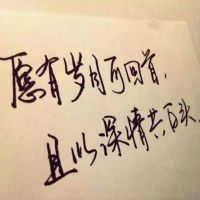 愿有岁月可回首,
且以深情共白头